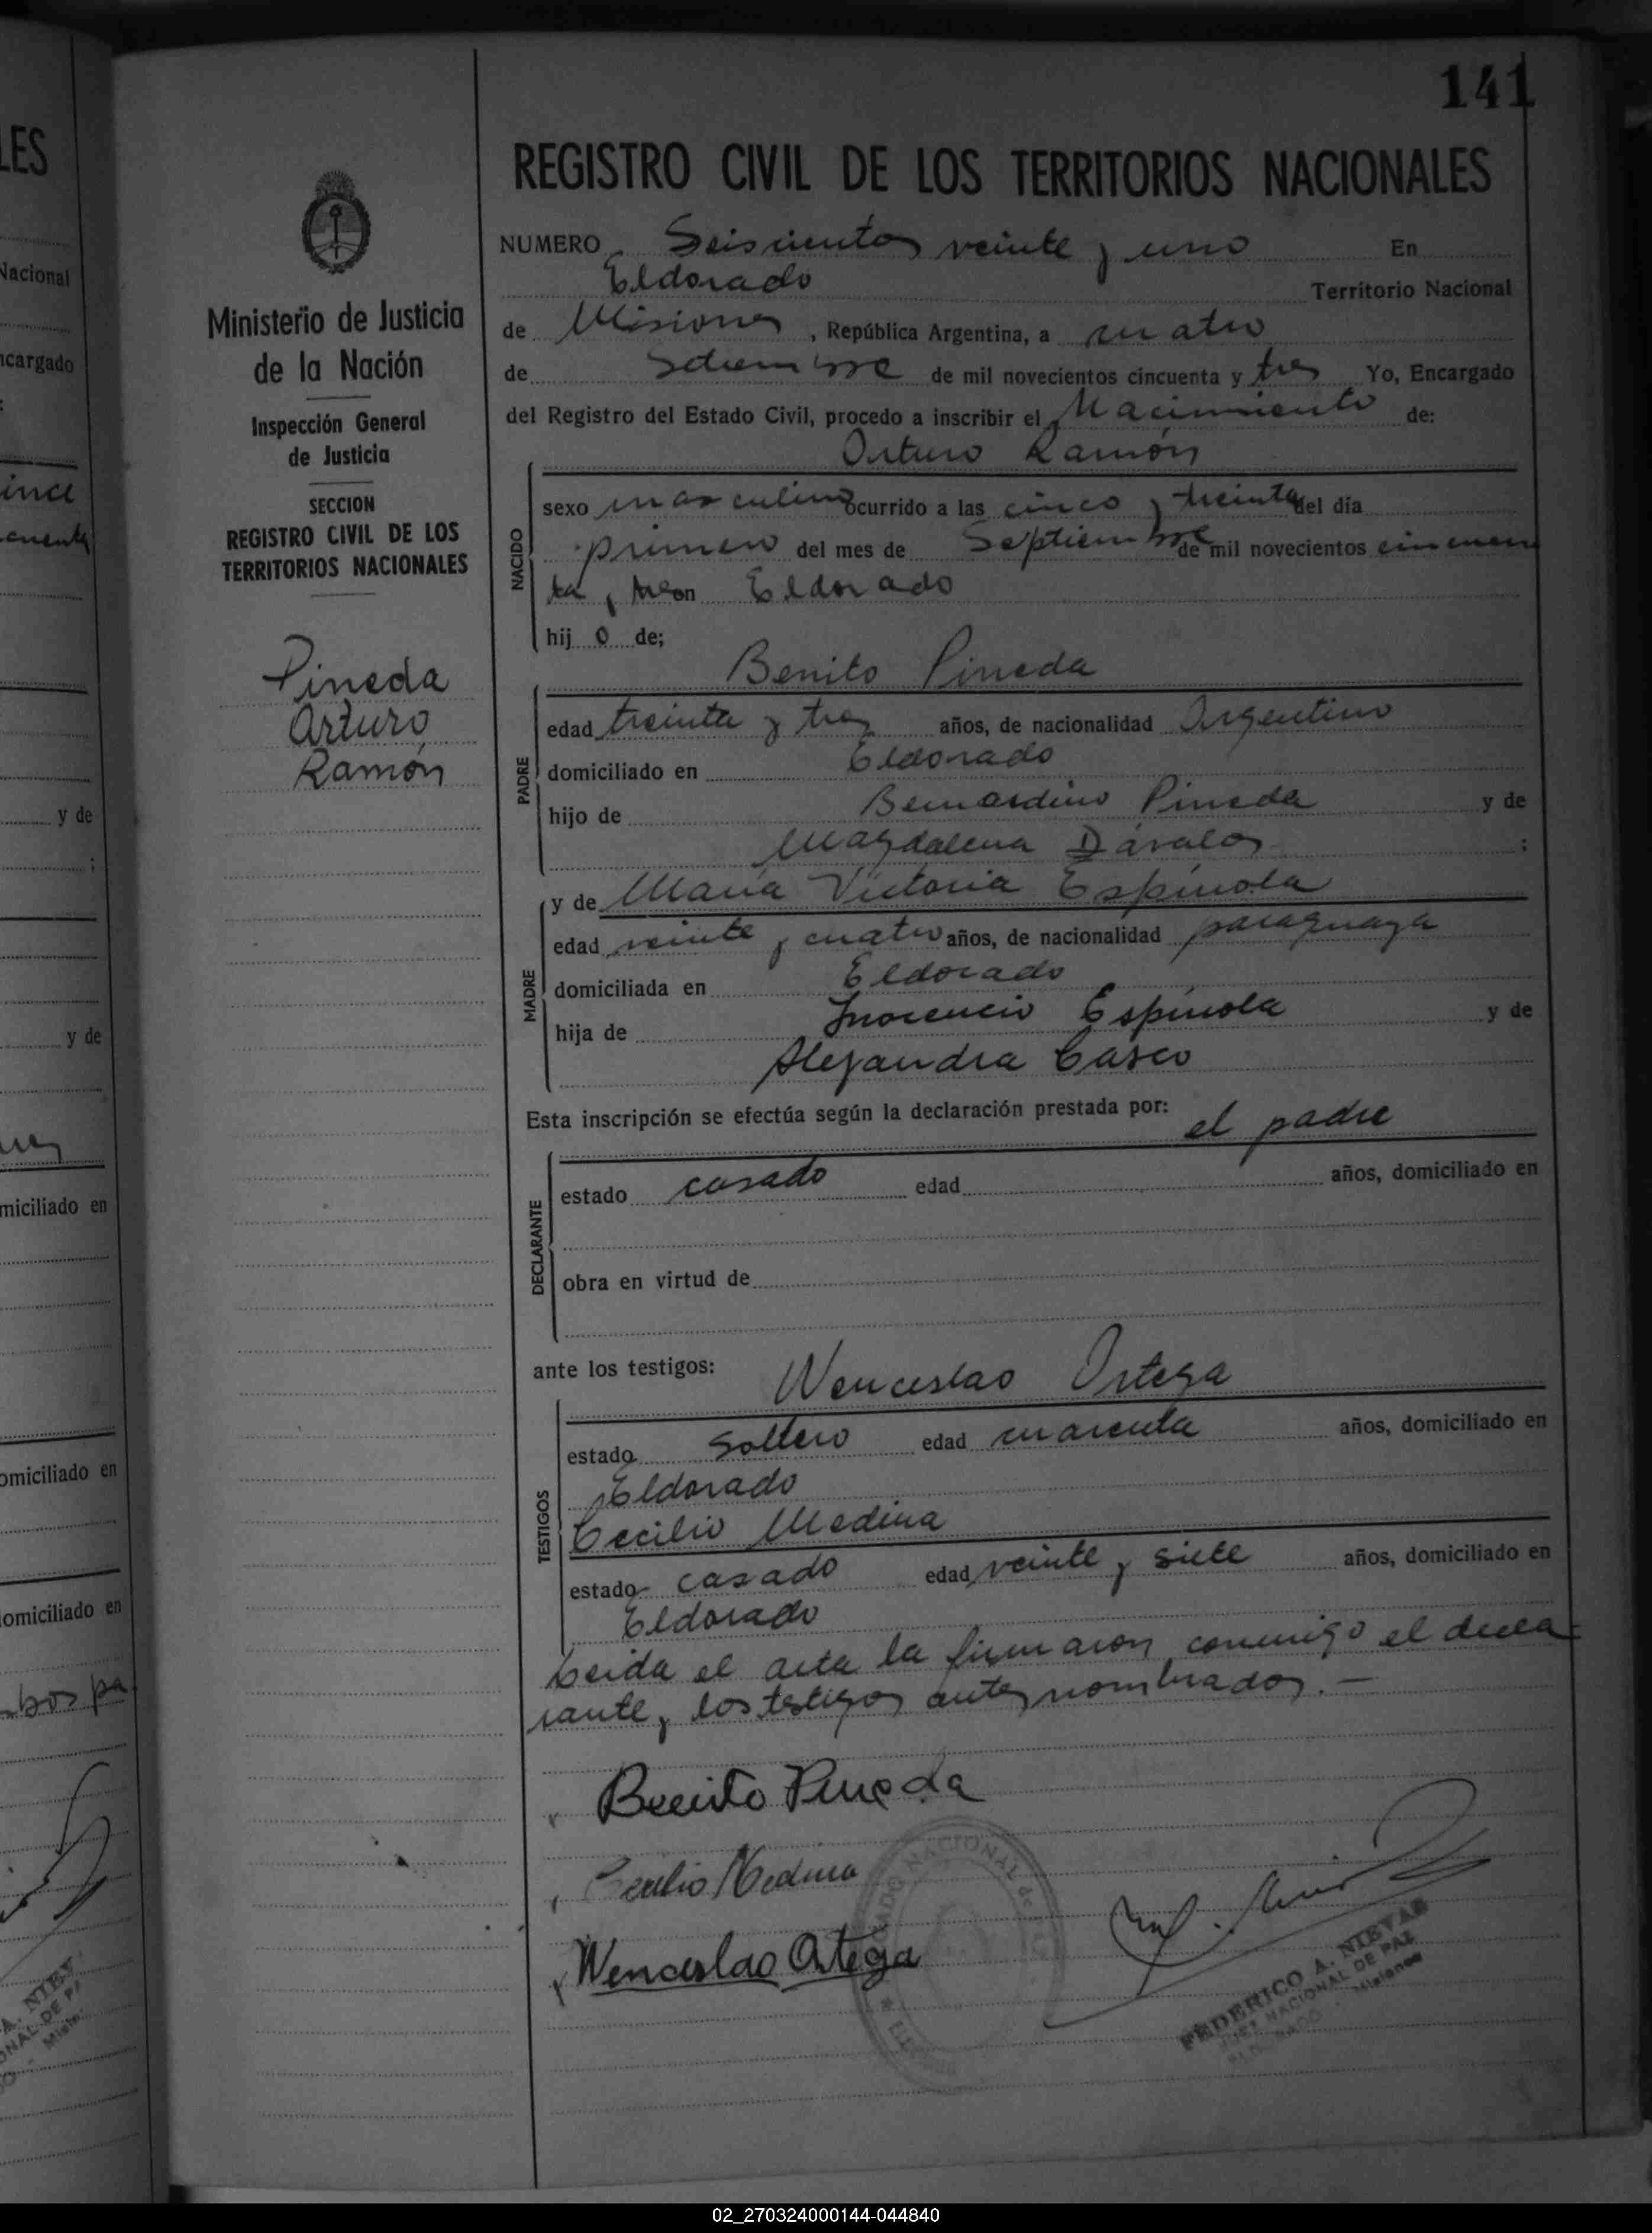 141
REGISTRO CIVIL DE LOS TERRITORIOS NACIONALES
Ministerio de Justicia
de la Nación
Inspección General
de Justicia
SECCION
REGISTRO CIVIL DE LOS
TERRITORIOS NACIONALES
Pineda
Arturo
Ramón
NUMERO Seiscientos veinte y uno En
Eldorado Territorio Nacional
de Misiones, República Argentina, a cuatro
de Setiembre de mil novecientos cincuenta y tres Yo, Encargado
del Registro del Estado Civil, procedo a inscribir el Nacimiento de:
Arturo Ramón
NACIDO
sexo masculino ocurrido a las cinco y treinta del día
primero del mes de Septiembre de mil novecientos cincuen
ta y tres en Eldorado
hijo de;
Benito Pineda
PADRE
edad treinta y tres años, de nacionalidad Argentino
domiciliado en Eldorado
hijo de Bernardino Pineda y de
Magdalena Dávalos ;
y de María Victoria Espínola
MADRE
edad veinte y cuatro años, de nacionalidad paraguaya
domiciliada en Eldorado
hija de Inocencio Espínola y de
Alejandra Casco
Esta inscripción se efectúa según la declaración prestada por: el padre
DECLARANTE
estado casado edad años, domiciliado en
obra en virtud de
ante los testigos: Wenceslao Ortega
TESTIGOS
estado Soltero edad cuarenta años, domiciliado en
Eldorado
Cecilio Medina
estado casado edad veinte y siete años, domiciliado en
Eldorado
Leida el acta la firmaron conmigo el decla
rante y los testigos antes nombrados.—
Benito Pineda
Cecilio Medina
Wenceslao Ortega
FEDERICO A. NIEVAS
JUEZ NACIONAL DE PAZ
ELDORADO - Misiones
02_270324000144-044840